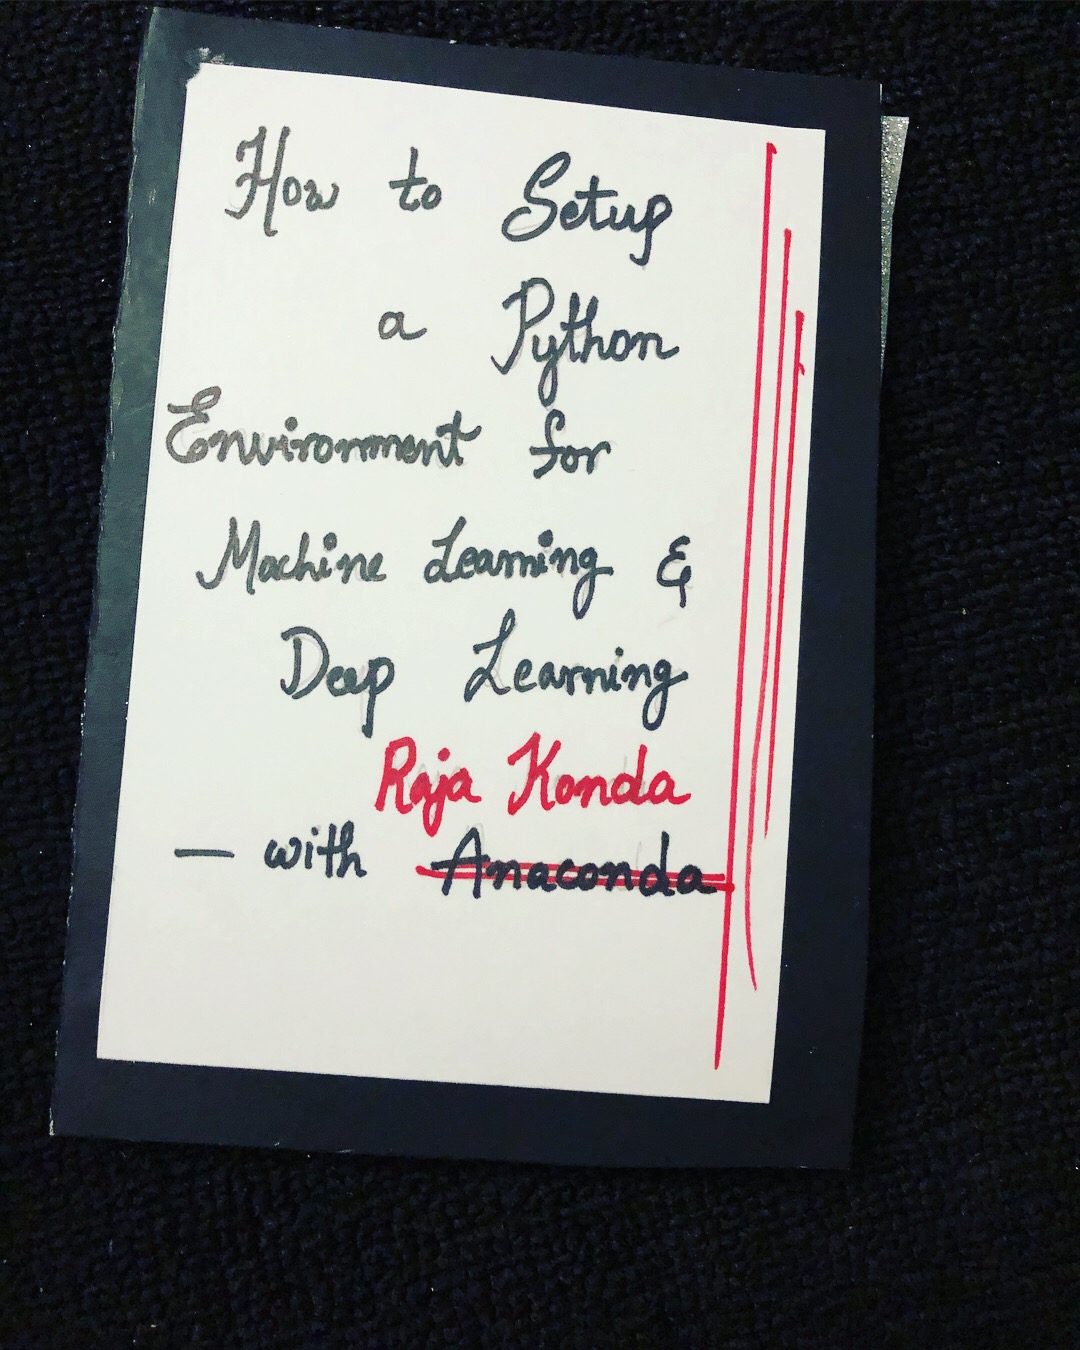 How to Setup
a Python
Environment for
Machine Learning &
Deep Learning
Raja Konda
— with Anaconda